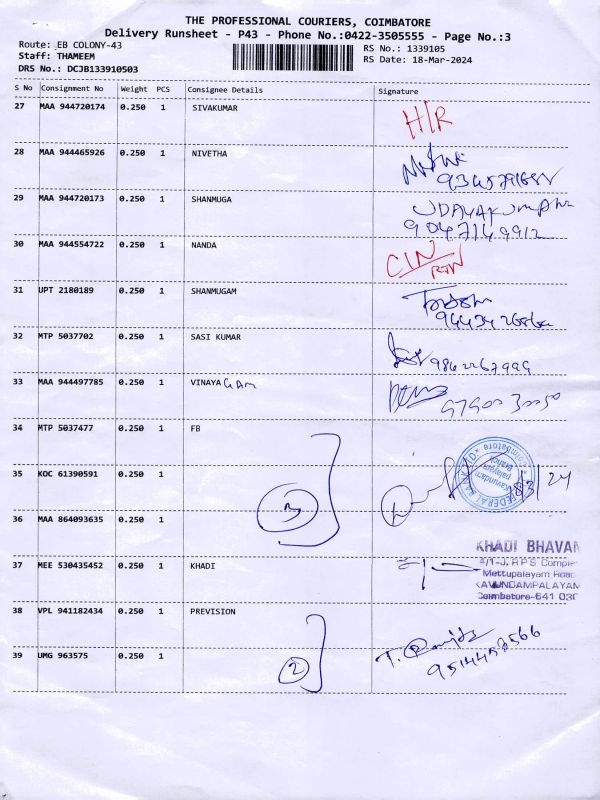 THE PROFESSIONAL COURIERS, COIMBATORE
Delivery Runsheet - P43 - Phone No.:0422-3505555 - Page No.:3
Route: EB COLONY-43
RS No.: 1339105
Staff: THAMEEM
RS Date: 18-Mar-2024
DRS No.: DCJB133910503
S No Consignment No Weight PCS Consignee Details Signature
27 MAA 944720174 0.250 1 SIVAKUMAR
28 MAA 944465926 0.250 1 NIVETHA
29 MAA 944720173 0.250 1 SHANMUGA UDAYAKUMAR
9047149912
30 MAA 944554722 0.250 1 NANDA
31 UPT 2180189 0.250 1 SHANMUGAM
32 MTP 5037702 0.250 1 SASI KUMAR
33 MAA 944497785 0.250 1 VINAYAGAM
34 MTP 5037477 0.250 1 FB
35 KOC 61390591 0.250 1
36 MAA 864093635 0.250 1
3
FEDERAL BANK
Kavundam
palayam
Branch
Coimbatore
KHADI BHAVAN
37 MEE 530435452 0.250 1 KHADI
Mettupalayam Road
KAVUNDAMPALAYAM
Coimbatore-641 030
38 VPL 941182434 0.250 1 PREVISION
39 UMG 963575 0.250 1
2